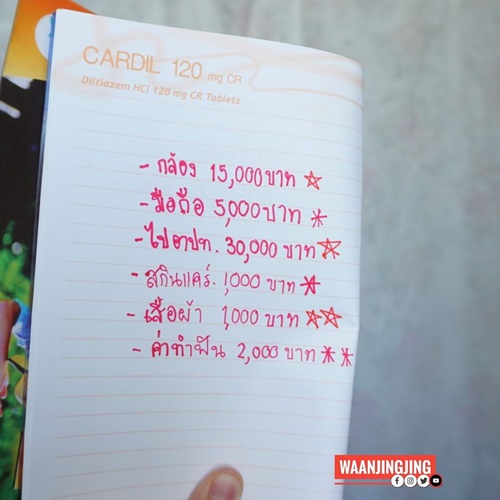 CARDIL 120 mg CR
Diltiazem HCl 120 mg CR Tablets
- กล้อง 15,000 บาท
- มือถือ 5,000 บาท
- ไปตปท. 30,000 บาท
- สกินแคร์. 1,000 บาท
- เสื้อผ้า 1,000 บาท
- ค่าทำฟัน 2,000 บาท
WAANJINGJING